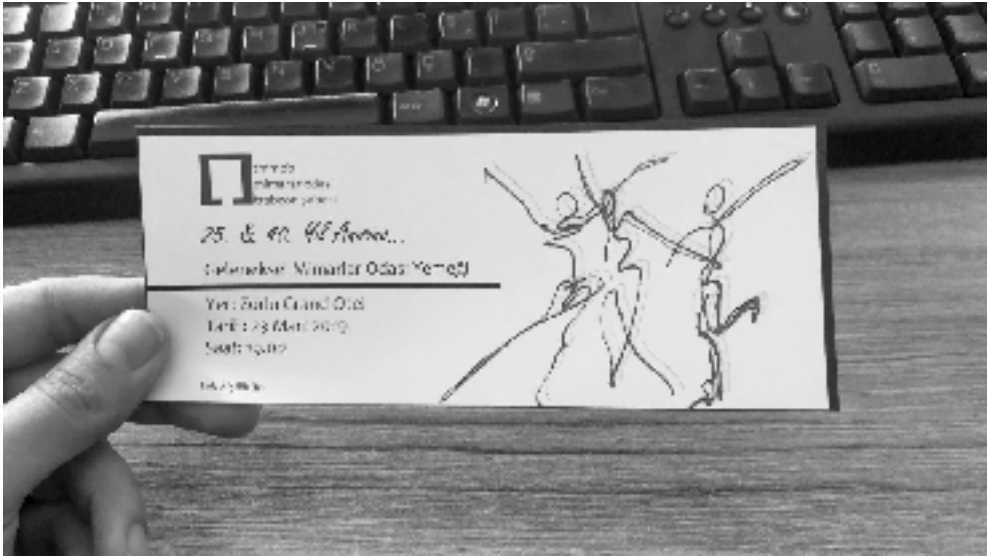 tmmob
mimarlar odası
trabzon şubesi
25. & 40. Yıl Anısına...
Geleneksel Mimarlar Odası Yemeği
Yer: Zorlu Grand Otel
Tarih: 23 Mart 2019
Saat: 19.00